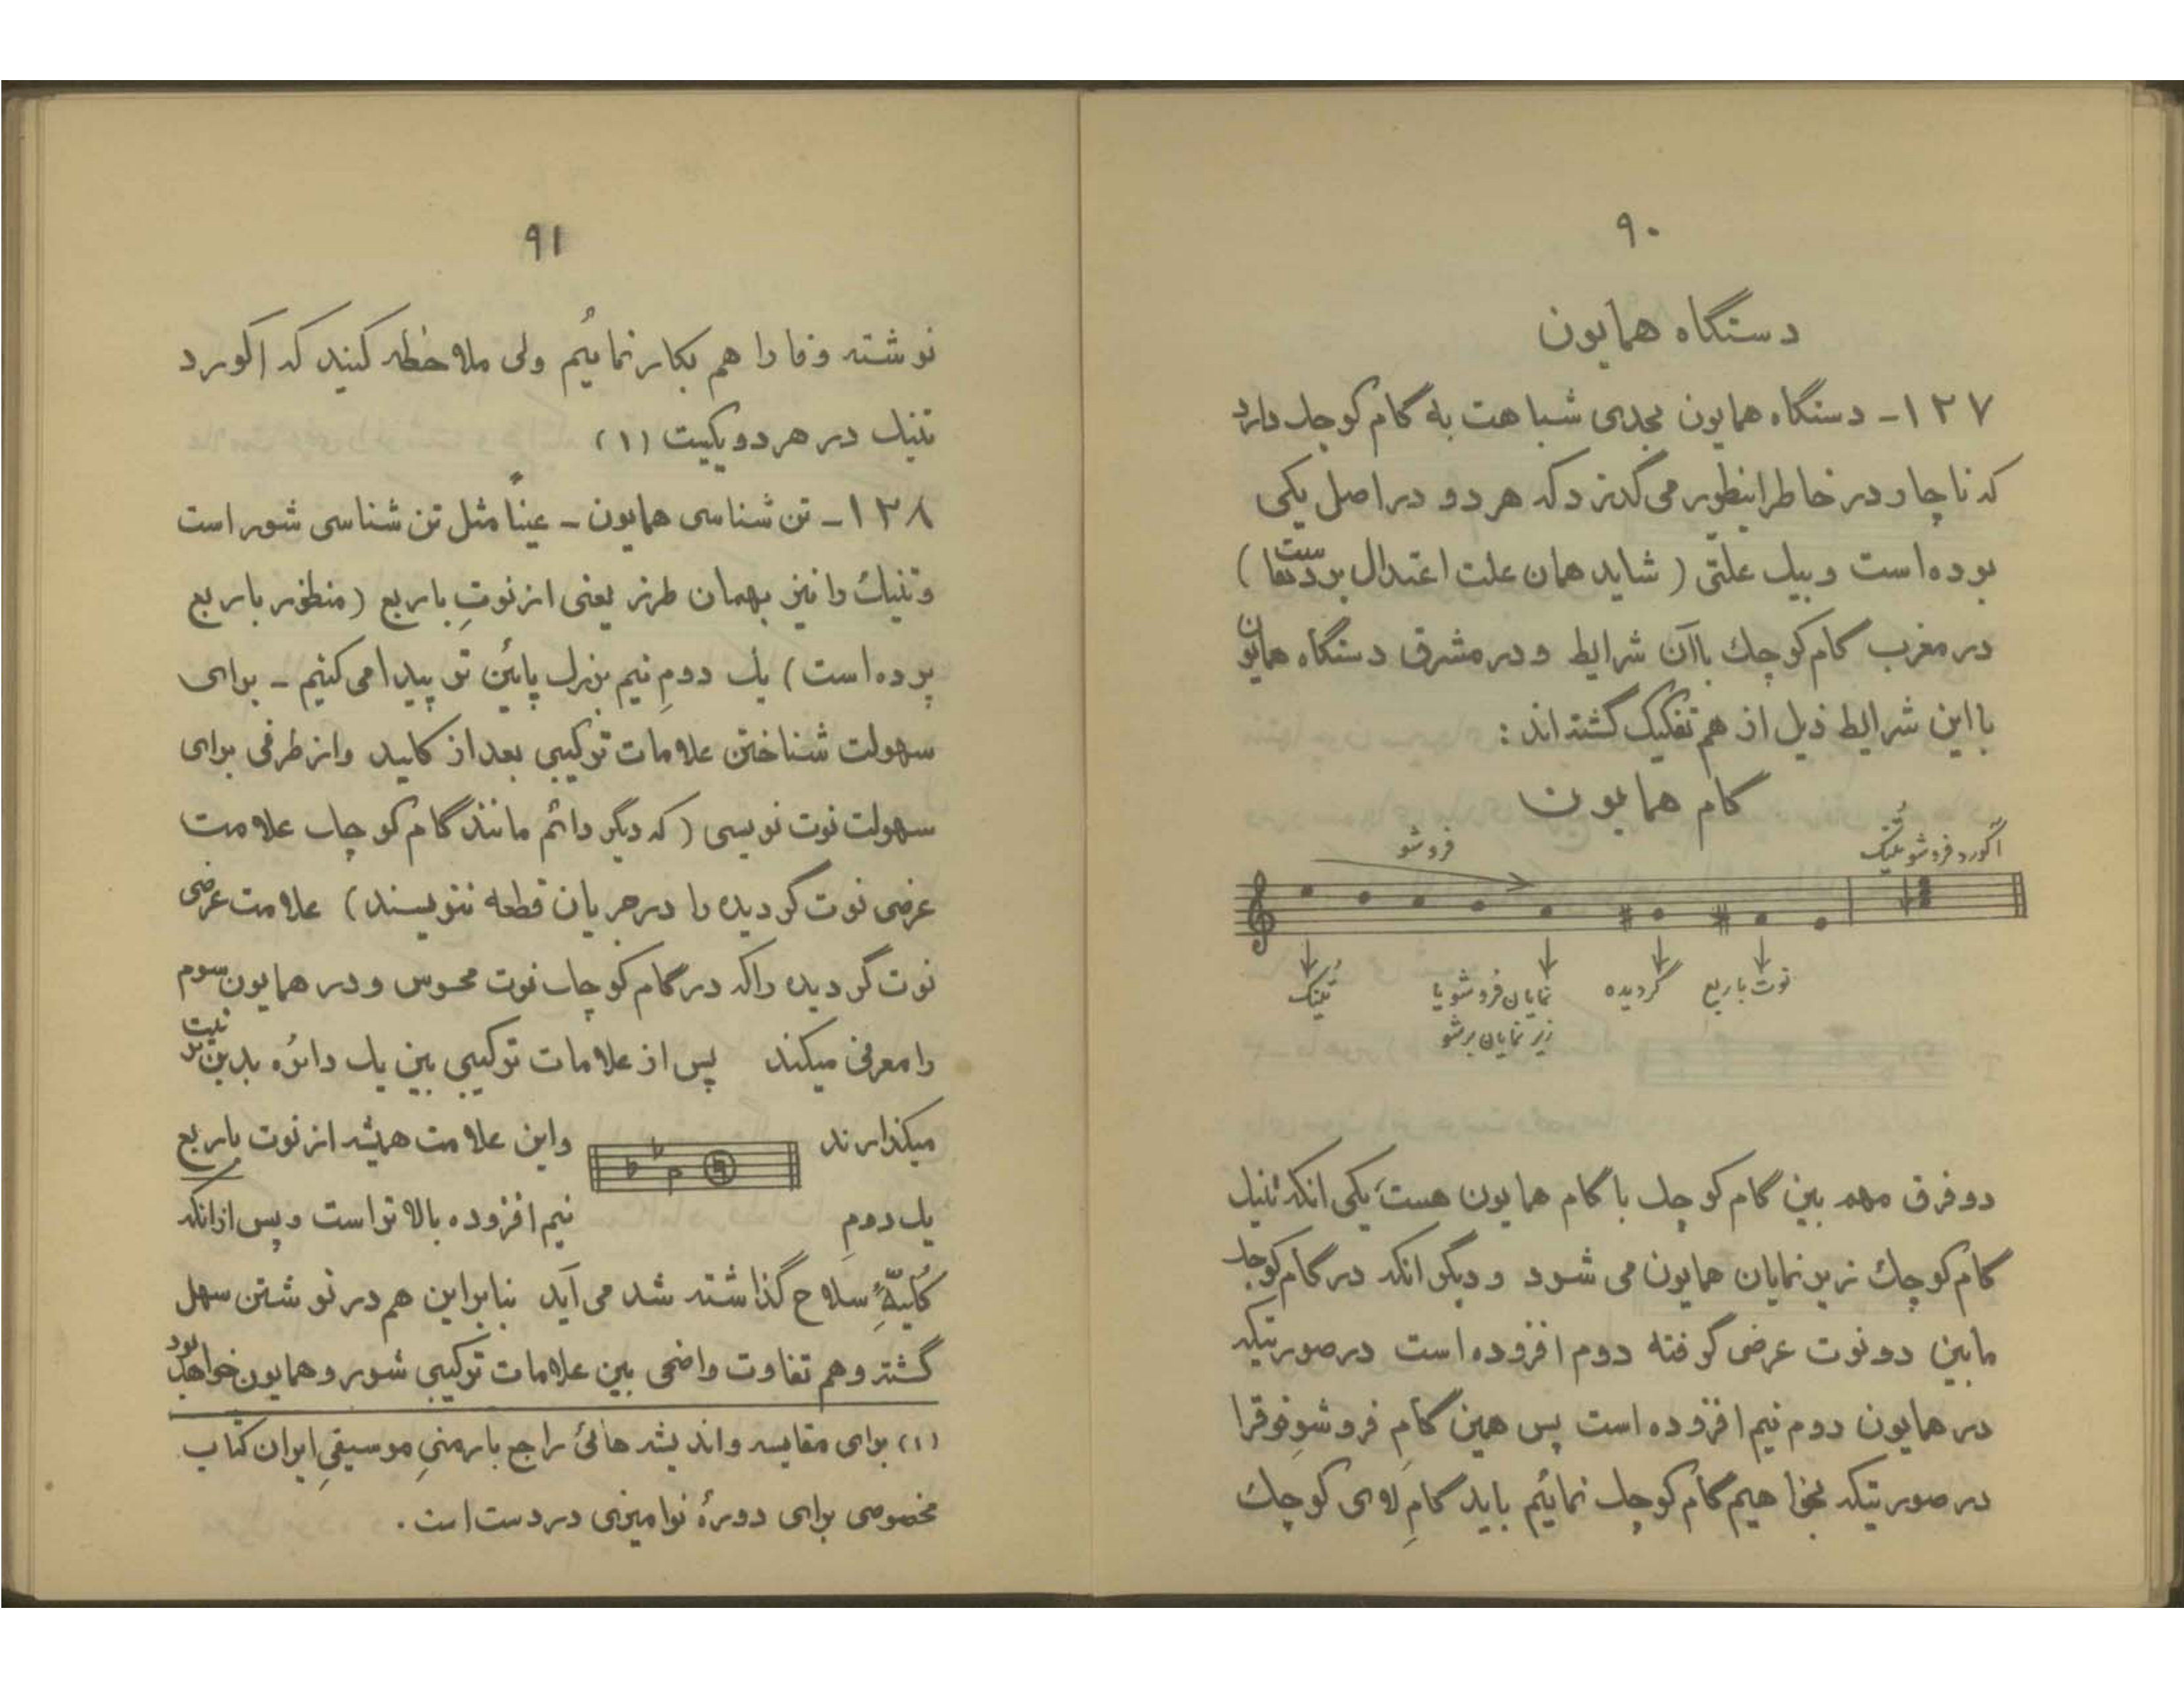 ۹۰
دستگاه همایون
۱۲۷ـ دستگاه همایون بحدی شباهت به گام کوچك دارد
که ناچار در خاطر اینطور می گذرد که هر دو در اصل یکی
بوده است و بیك علتی ( شاید همان علت اعتدال بودنها )
در مغرب گام کوچك باآن شرایط و در مشرق دستگاه همایون
با این شرایط ذیل از هم تفکیک گشته اند :
گام همایون
فروشو
آکورد فروشو تُنیک
تُنیک
نمایان فروشو یا
زیر نمایان برشو
گردیده
نوت با ربع
دو فرق مهم بین گام کوچك با گام همایون هست، یکی انکه تنیك
گام کوچك زیرنمایان همایون می شود و دیگر انکه در گام کوچك
مابین دو نوت عرضی گرفته دوم افزوده است در صورتیکه
در همایون دوم نیم افزوده است پس همین گامِ فروشوِ فوق را
در صورتیکه بخواهیم گام کوچك نمائیم باید گامِ لاءی کوچك
۹۱
نوشته و فا را هم بکار نمائیم ولی ملاحظه کنید که اکورد
تنیك در هر دو یکیست (۱)
۱۲۸ـ تن شناسی همایون ـ عیناً مثل تن شناسی شور است
و تنیك را نیز بهمان طرز یعنی از نوتِ باربع (منظور باربع
پرده است) یك دومِ نیم بزرك پائین تر پیدا می کنیم ـ برای
سهولت شناختن علامات ترکیبی بعد از کلید و از طرفی برای
سهولت نوت نویسی ( که دیگر دائم مانند گام کوچك علامت
عرضی نوت گردیده را در جریان قطعه ننویسند) علامت عرضی
نوت گردیده را که در گام کوچك نوت محسوس و در همایون سوم
را معرفی میکند پس از علامات ترکیبی بین یك دائره بدین ترتیب
میکذارند واین علامت همیشه از نوت باربع
یك دومِ نیم افزوده بالا تر است و پس از انکه
کُلیّهٔ سلاح گذاشته شد می آید بنابراین هم در نوشتن سهل
گشته و هم تفاوت واضحی بین علامات ترکیبی شور و همایون خواهد بود
(۱) برای مقایسه و اندیشه هائی راجع بارمنیِ موسیقیِ ایران کتاب
مخصوصی برای دورهٔ نوامیزی در دست است .